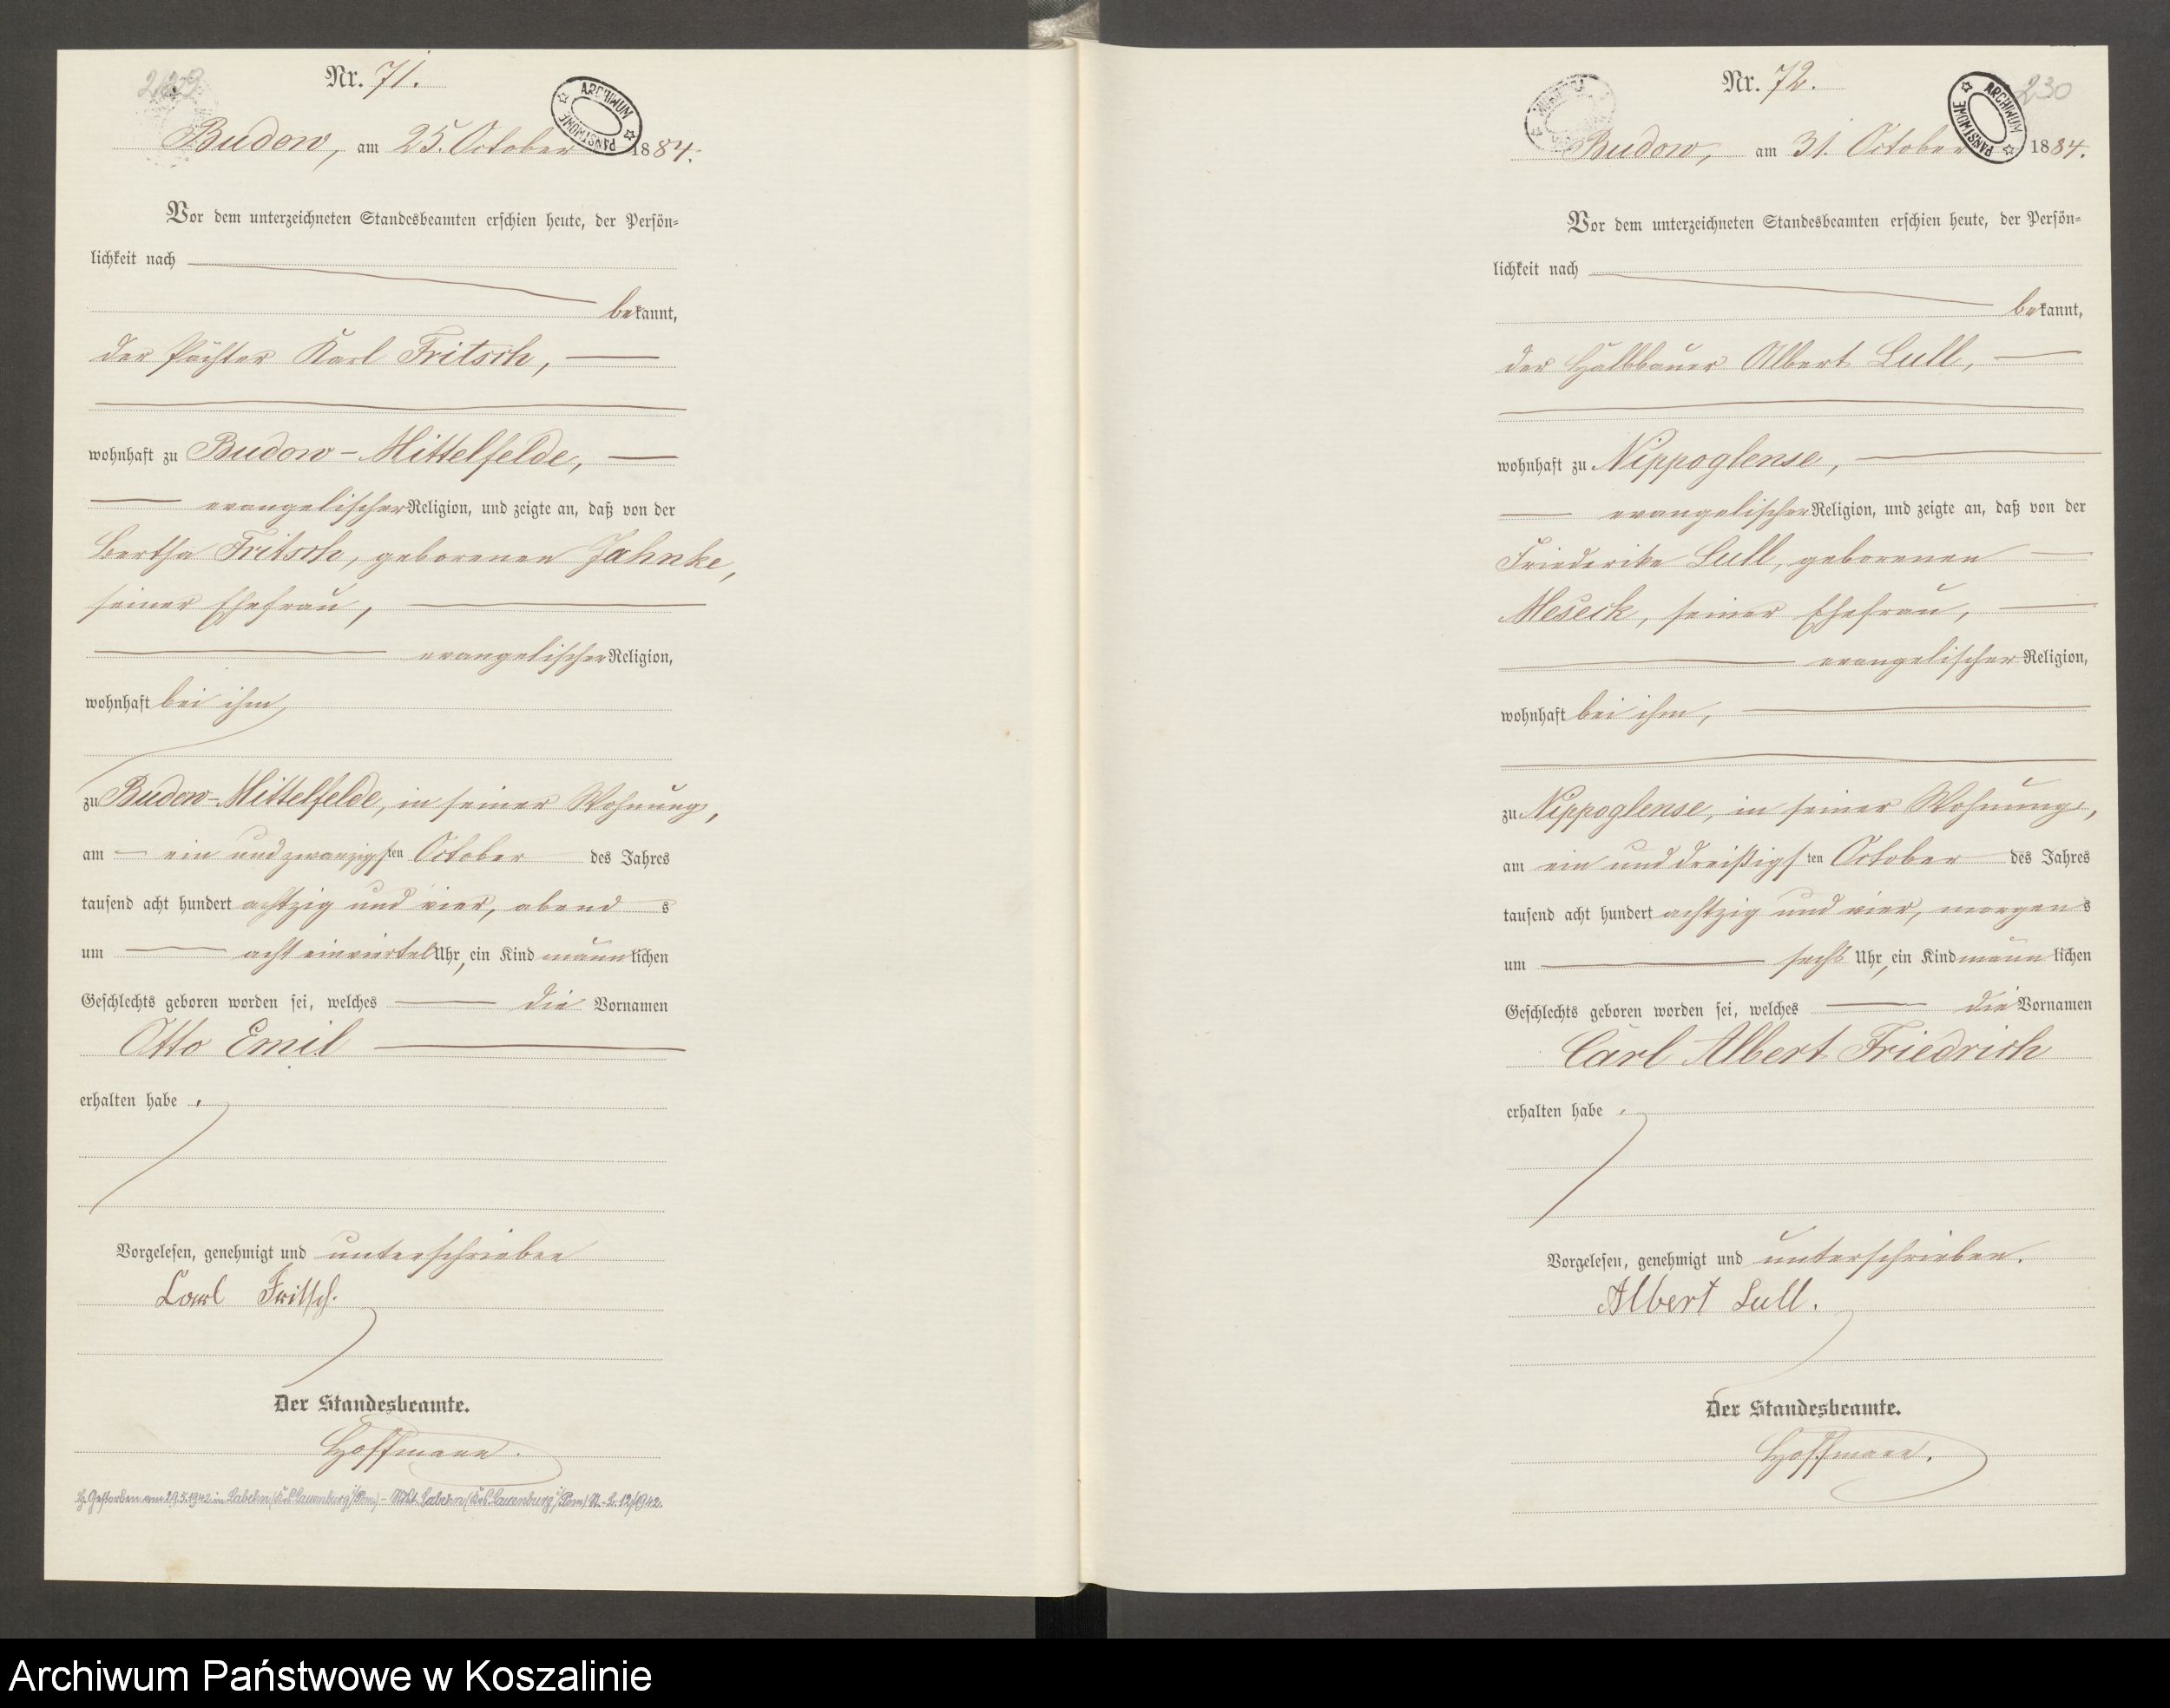 229
Nr. 71.
ARCHIWUM PAŃSTWOWE
Budow, am 25. October 1884.
Vor dem unterzeichneten Standesbeamten erschien heute, der Persön=
lichkeit nach
bekannt,
der Pächter Karl Fritsch,
wohnhaft zu Budow-Mittelfelde,
evangelischer Religion, und zeigte an, daß von der
Bertha Fritsch, geborenen Jahnke,
seiner Ehefrau,
evangelischer Religion,
wohnhaft bei ihm
zu Budow-Mittelfelde, in seiner Wohnung,
am ein und zwanzigsten October des Jahres
tausend acht hundert achtzig und vier, abends
um acht einviertel Uhr, ein Kind männlichen
Geschlechts geboren worden sei, welches die Vornamen
Otto Emil
erhalten habe.
Vorgelesen, genehmigt und unterschrieben
Carl Fritsch.
Der Standesbeamte.
Hoffmann.
Gestorben am 29.5.1942 in Labehn (Krs. Lauenburg i/Pom) - St.-L. 12/1942.
230
Nr. 72.
ARCHIWUM PAŃSTWOWE
Budow, am 31. October 1884.
Vor dem unterzeichneten Standesbeamten erschien heute, der Persön=
lichkeit nach
bekannt,
der Halbbauer Albert Lull,
wohnhaft zu Nippoglense,
evangelischer Religion, und zeigte an, daß von der
Friederike Lull, geborenen
Meseck, seiner Ehefrau,
evangelischer Religion,
wohnhaft bei ihm,
zu Nippoglense, in seiner Wohnung,
am ein und dreißigsten October des Jahres
tausend acht hundert achtzig und vier, morgens
um sechs Uhr, ein Kind männlichen
Geschlechts geboren worden sei, welches die Vornamen
Carl Albert Friedrich
erhalten habe.
Vorgelesen, genehmigt und unterschrieben.
Albert Lull.
Der Standesbeamte.
Hoffmann.
Archiwum Państwowe w Koszalinie